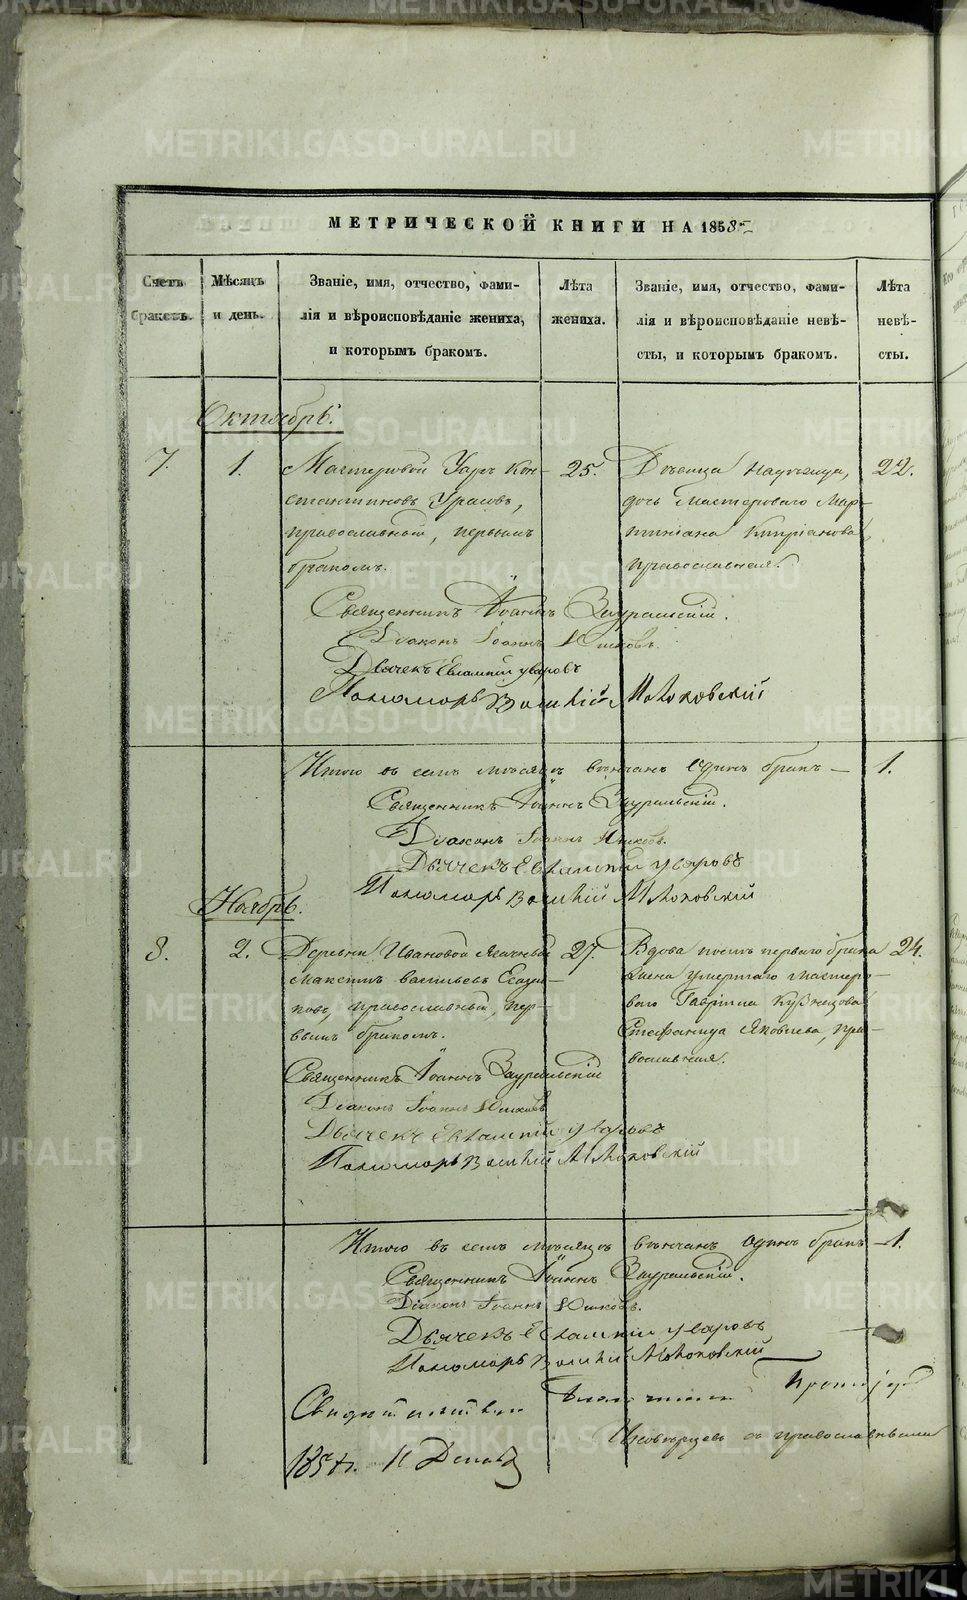 МЕТРИЧЕСКОЙ КНИГИ НА 1858
Счетъ браковъ.
Мѣсяцъ и день.
Званіе, имя, отчество, фами-
лія и вѣроисповѣданіе жениха,
и которымъ бракомъ.
Лѣта
жениха.
Званіе, имя, отчество, фами-
лія и вѣроисповѣданіе невѣ-
сты, и которымъ бракомъ.
Лѣта
невѣ-
сты.
Октябрь.
7.
1.
Мастеровой Уаръ Кон-
стантиновъ Урасовъ,
православный, первымъ
бракомъ.
25.
Дѣвица
дочь мастероваго Мар-
тиніана Кипріанова
православная.
22.
Священникъ Іоаннъ Зауральскій.
Діаконъ Іоаннъ Юшковъ.
Дьячекъ Евлампій Уваровъ
Пономарь Василій Молоковскій
Итого въ семъ мѣсяцѣ вѣнчанъ одинъ бракъ — 1.
Священникъ Іоаннъ Зауральскій.
Діаконъ Іоаннъ Юшковъ.
Дьячекъ Евлампій Уваровъ
Пономарь Василій Молоковскій
Ноябрь.
8.
2.
Деревни Ивановой
Максимъ Васильевъ
православный, пер-
вымъ бракомъ.
27.
Вдова послѣ перваго брака
жена умершаго мастеро-
ваго Гавріила Кузнецова
Стефанида Яковлева, пра-
вославная.
24.
Священникъ Іоаннъ Зауральскій
Діаконъ Іоаннъ Юшковъ
Дьячекъ Евлампій Уваровъ
Пономарь Василій Молоковскій
Итого въ семъ мѣсяцѣ вѣнчанъ одинъ бракъ — 1.
Священникъ Іоаннъ Зауральскій.
Діаконъ Іоаннъ Юшковъ.
Дьячекъ Евлампій Уваровъ
Пономарь Василій Молоковскій
православными
METRIKI.GASO-URAL.RU